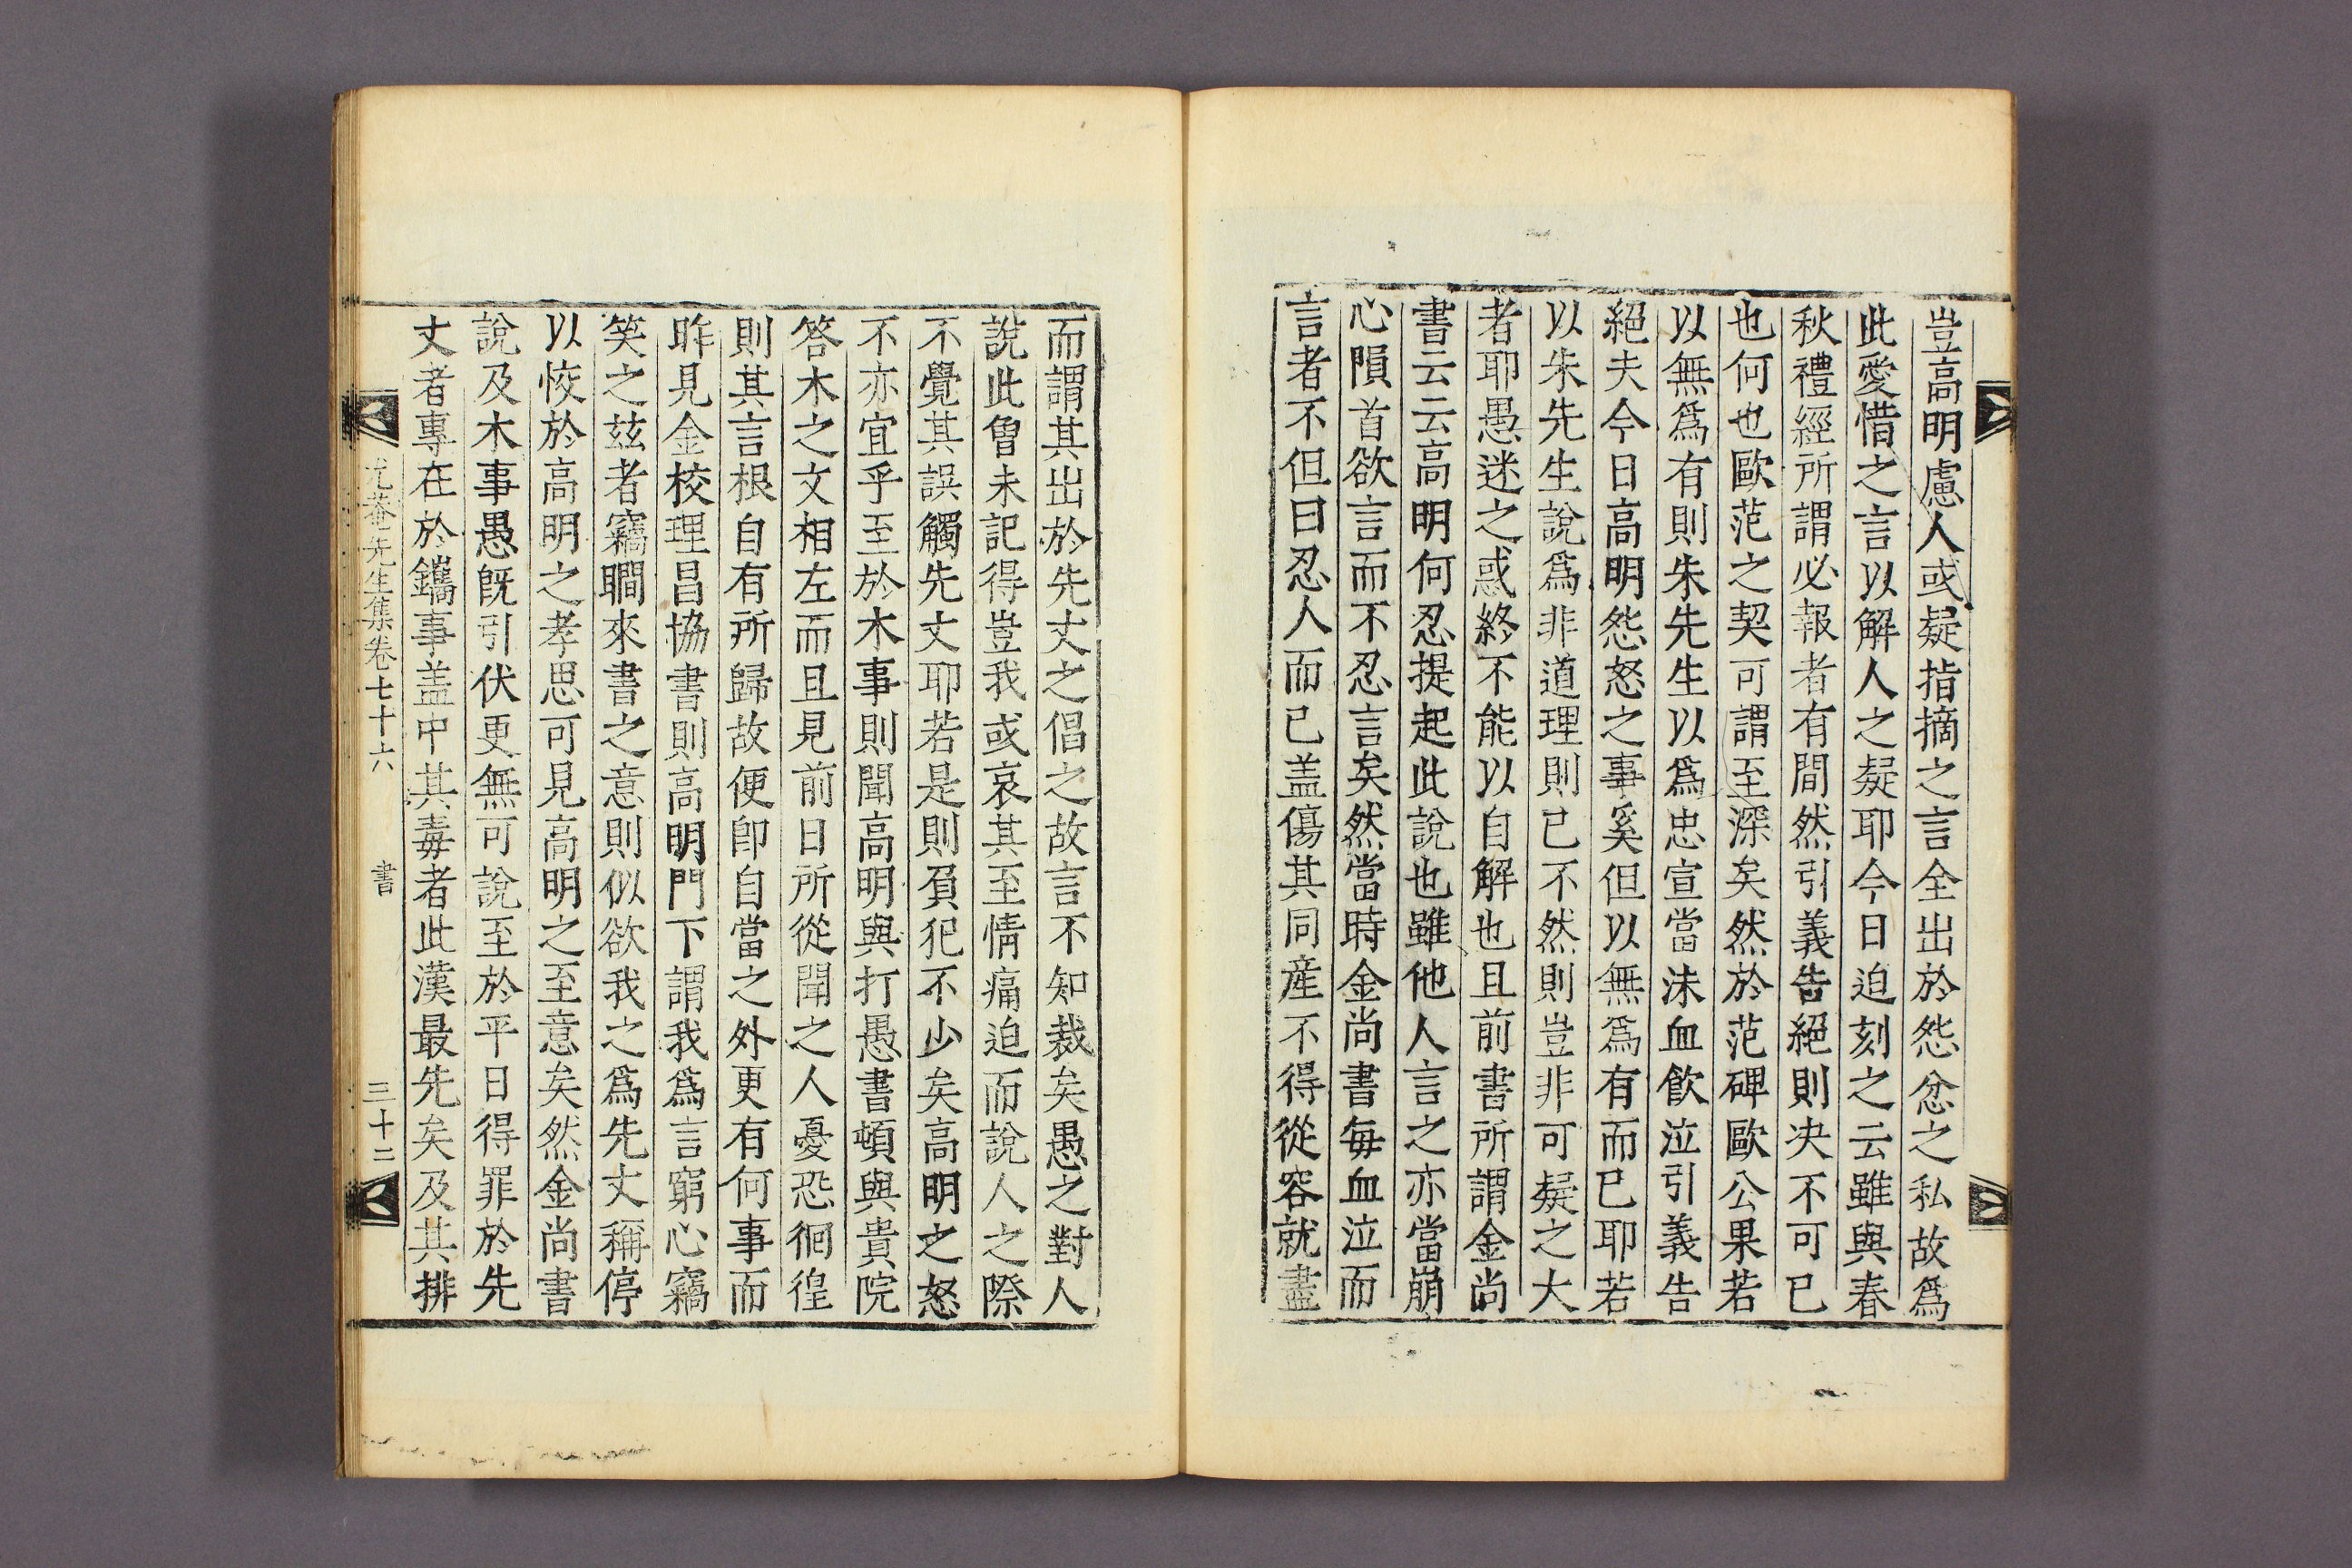 豈高明慮人或疑指摘之言全出於怨忿之私故爲
此愛惜之言以解人之疑耶今日迫刻之云雖與春
秋禮經所謂必報者有間然引義告絕則决不可已
也何也歐范之契可謂至深矣然於范碑歐公果若
以無爲有則朱先生以爲忠宣當沬血飮泣引義告
絕夫今日高明怨怒之事奚但以無爲有而已耶若
以朱先生說爲非道理則已不然則豈非可疑之大
者耶愚迷之惑終不能以自解也且前書所謂金尙
書云云高明何忍提起此說也雖他人言之亦當崩
心隕首欲言而不忍言矣然當時金尙書每血泣而
言者不但曰忍人而已盖傷其同産不得從容就盡
而謂其出於先丈之倡之故言不知裁矣愚之對人
說此曾未記得豈我或哀其至情痛迫而說人之際
不覺其誤觸先丈耶若是則負犯不少矣高明之怒
不亦宜乎至於木事則聞高明與打愚書頓與貴院
答木之文相左而且見前日所從聞之人憂恐徊徨
則其言根自有所歸故便卽自當之外更有何事而
昨見金校理昌協書則高明門下謂我爲言窮心竊
笑之玆者竊瞯來書之意則似欲我之爲先丈稱停
以恔於高明之孝思可見高明之至意矣然金尙書
說及木事愚旣引伏更無可說至於平日得罪於先
丈者專在於鑴事盖中其毒者此漢最先矣及其排
尤菴先生集卷七十六 書 三十二